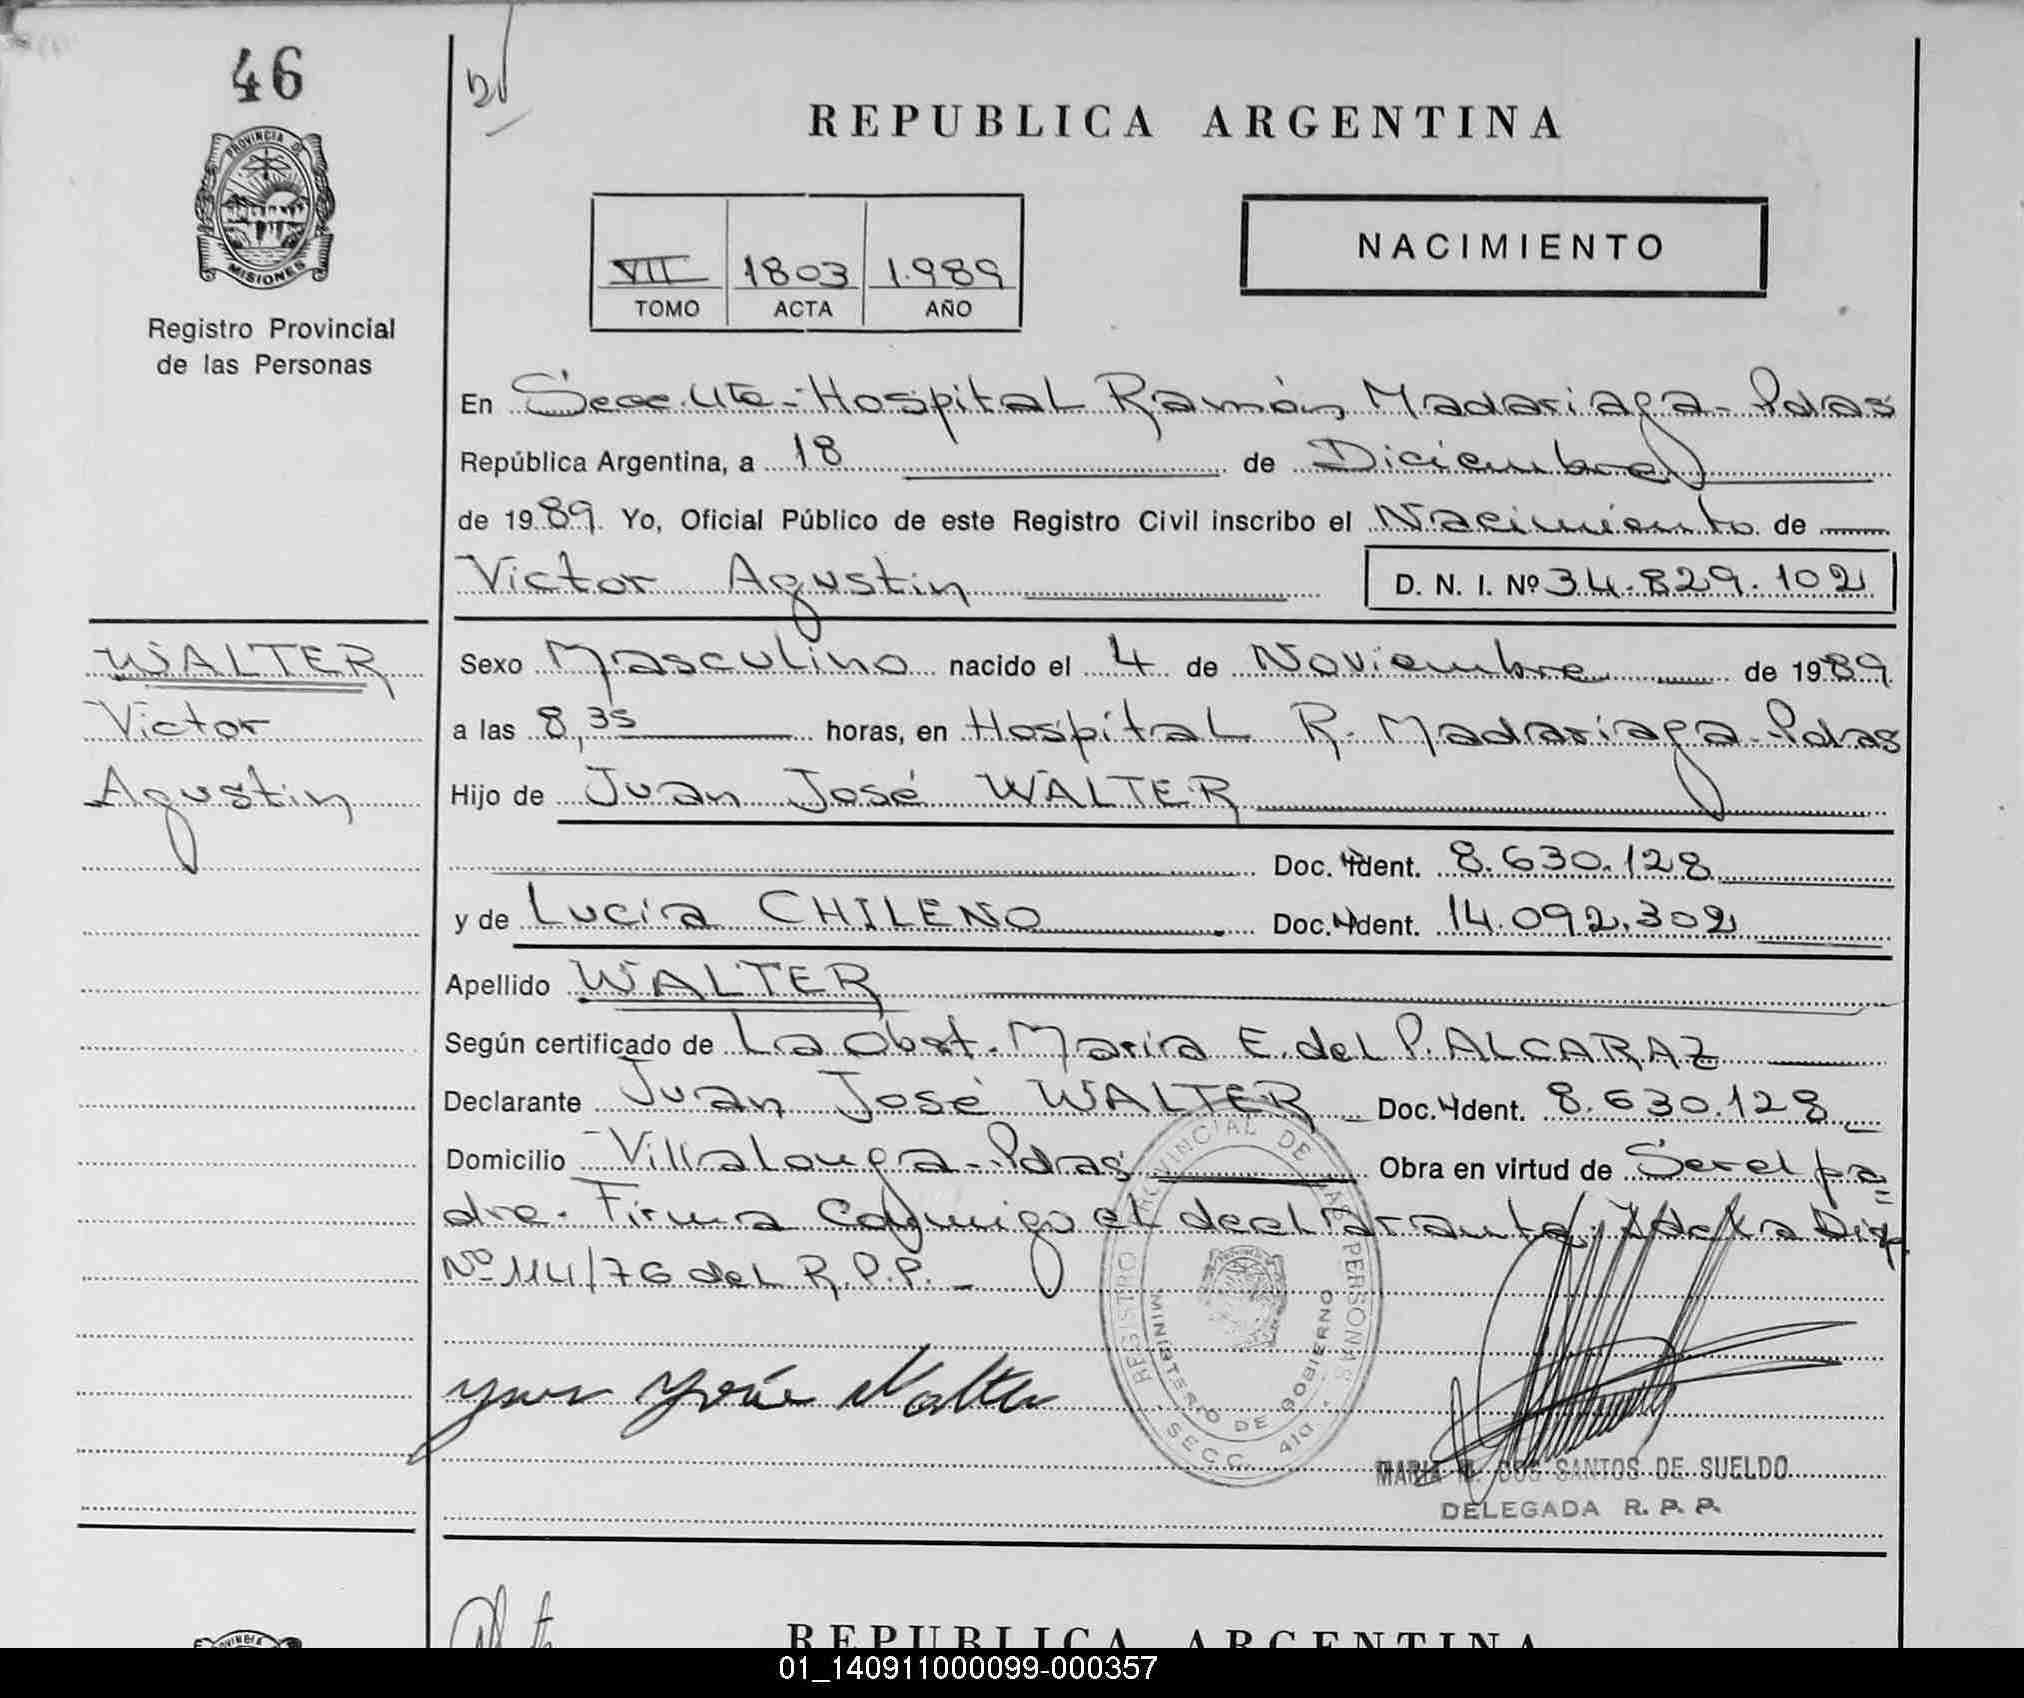 46
REPUBLICA ARGENTINA
PROVINCIA DE
MISIONES
Registro Provincial
de las Personas
VII 1803 1.989
TOMO ACTA AÑO
NACIMIENTO
En Secc. 4ta - Hospital Ramón Madariaga - Pdas
República Argentina, a 18 de Diciembre
de 1989. Yo, Oficial Público de este Registro Civil inscribo el Nacimiento de
Victor Agustin D. N. I. Nº 34.829.102
WALTER
Victor
Agustin
Sexo Masculino nacido el 4 de Noviembre de 1989
a las 8,35 horas, en Hospital R. Madariaga - Pdas
Hijo de Juan José WALTER
Doc. Ident. 8.630.128
y de Lucía CHILENO Doc. Ident. 14.092.302
Apellido WALTER
Según certificado de La Obst. María E. del P. ALCARAZ
Declarante Juan José WALTER Doc. Ident. 8.630.128
Domicilio Villalonga - Pdas Obra en virtud de Ser el pa=
dre. Firma conmigo el declarante.
Nº 114/76 del R.P.P. -
Juan José Walter
REGISTRO PROVINCIAL DE LAS PERSONAS
MINISTERIO DE GOBIERNO
SECC. 4ta
MARIA DOS SANTOS DE SUELDO
DELEGADA R. P. P.
REPUBLICA ARGENTINA
01_140911000099-000357